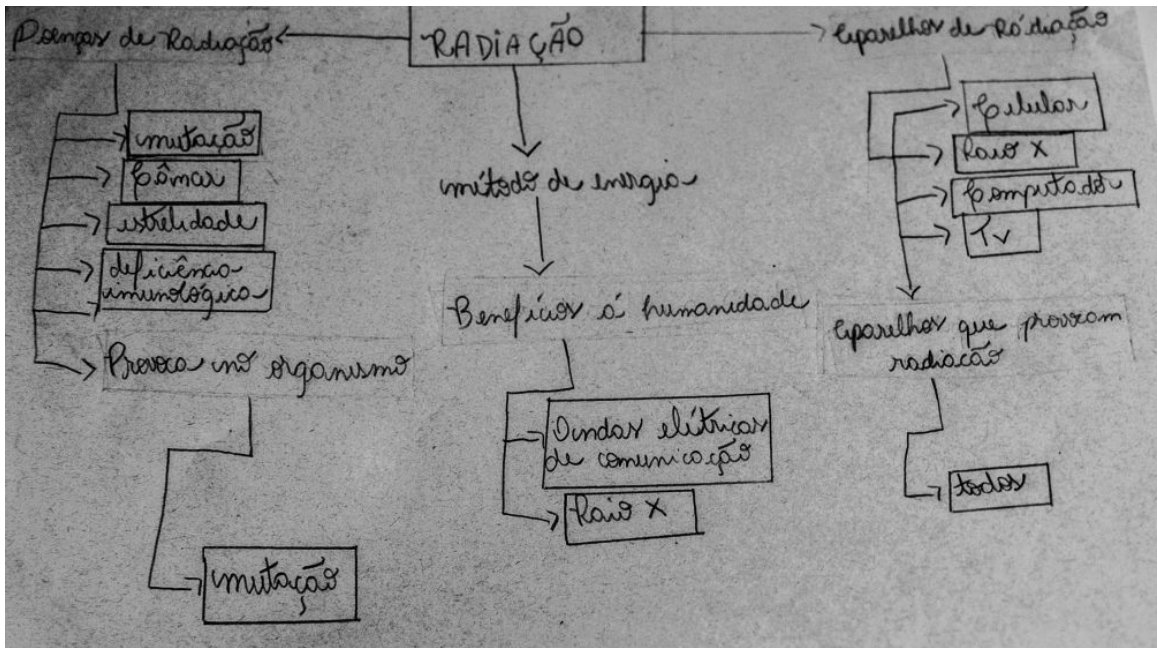 Doenças de Radiação
RADIAÇÃO
Aparelhos de Radiação
mutação
Câmar
estrelidade
deficiência
imunológica
Provoca no organismo
mutação
método de energia
Benefícios á humanidade
Ondas elétricas
de comunicação
Raio X
Celular
Raio X
Computador
Tv
Aparelhos que provocam
radiação
todos